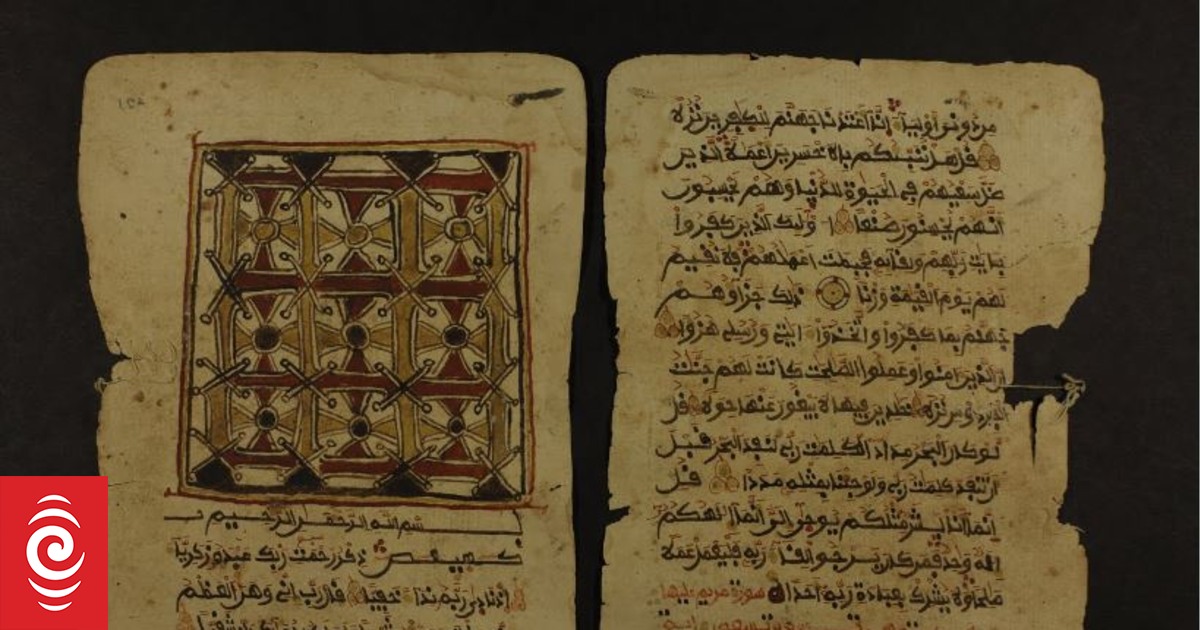 من دوني أولياء إنا أعتدنا جهنم للكفرين نزلا
قل هل ننبئكم بالاخسرين أعملا الذين
ضل سعيهم في الحيوة الدنيا وهم يحسبون
أنهم يحسنون صنعا اولئك الذين كفروا
بايت ربهم ولقائه فحبطت أعملهم فلا نقيم
لهم يوم القيمة وزنا ذلك جزاؤهم
جهنم بما كفروا واتخذوا ءايتي ورسلي هزوا
إن الذين ءامنوا وعملوا الصلحت كانت لهم جنت
الفردوس نزلا خلدين فيها لا يبغون عنها حولا قل
لو كان البحر مدادا لكلمت ربي لنفد البحر قبل
أن تنفد كلمت ربي ولو جئنا بمثله مددا قل
إنما أنا بشر مثلكم يوحى إلي أنما إلهكم
إله وحد فمن كان يرجوا لقاء ربه فليعمل عملا
صلحا ولا يشرك بعبادة ربه أحدا سورة مريم عليها
بسم الله الرحمن الرحيم
كهيعص ذكر رحمت ربك عبده زكريا
إذ نادى ربه نداء خفيا قال رب إني وهن العظم